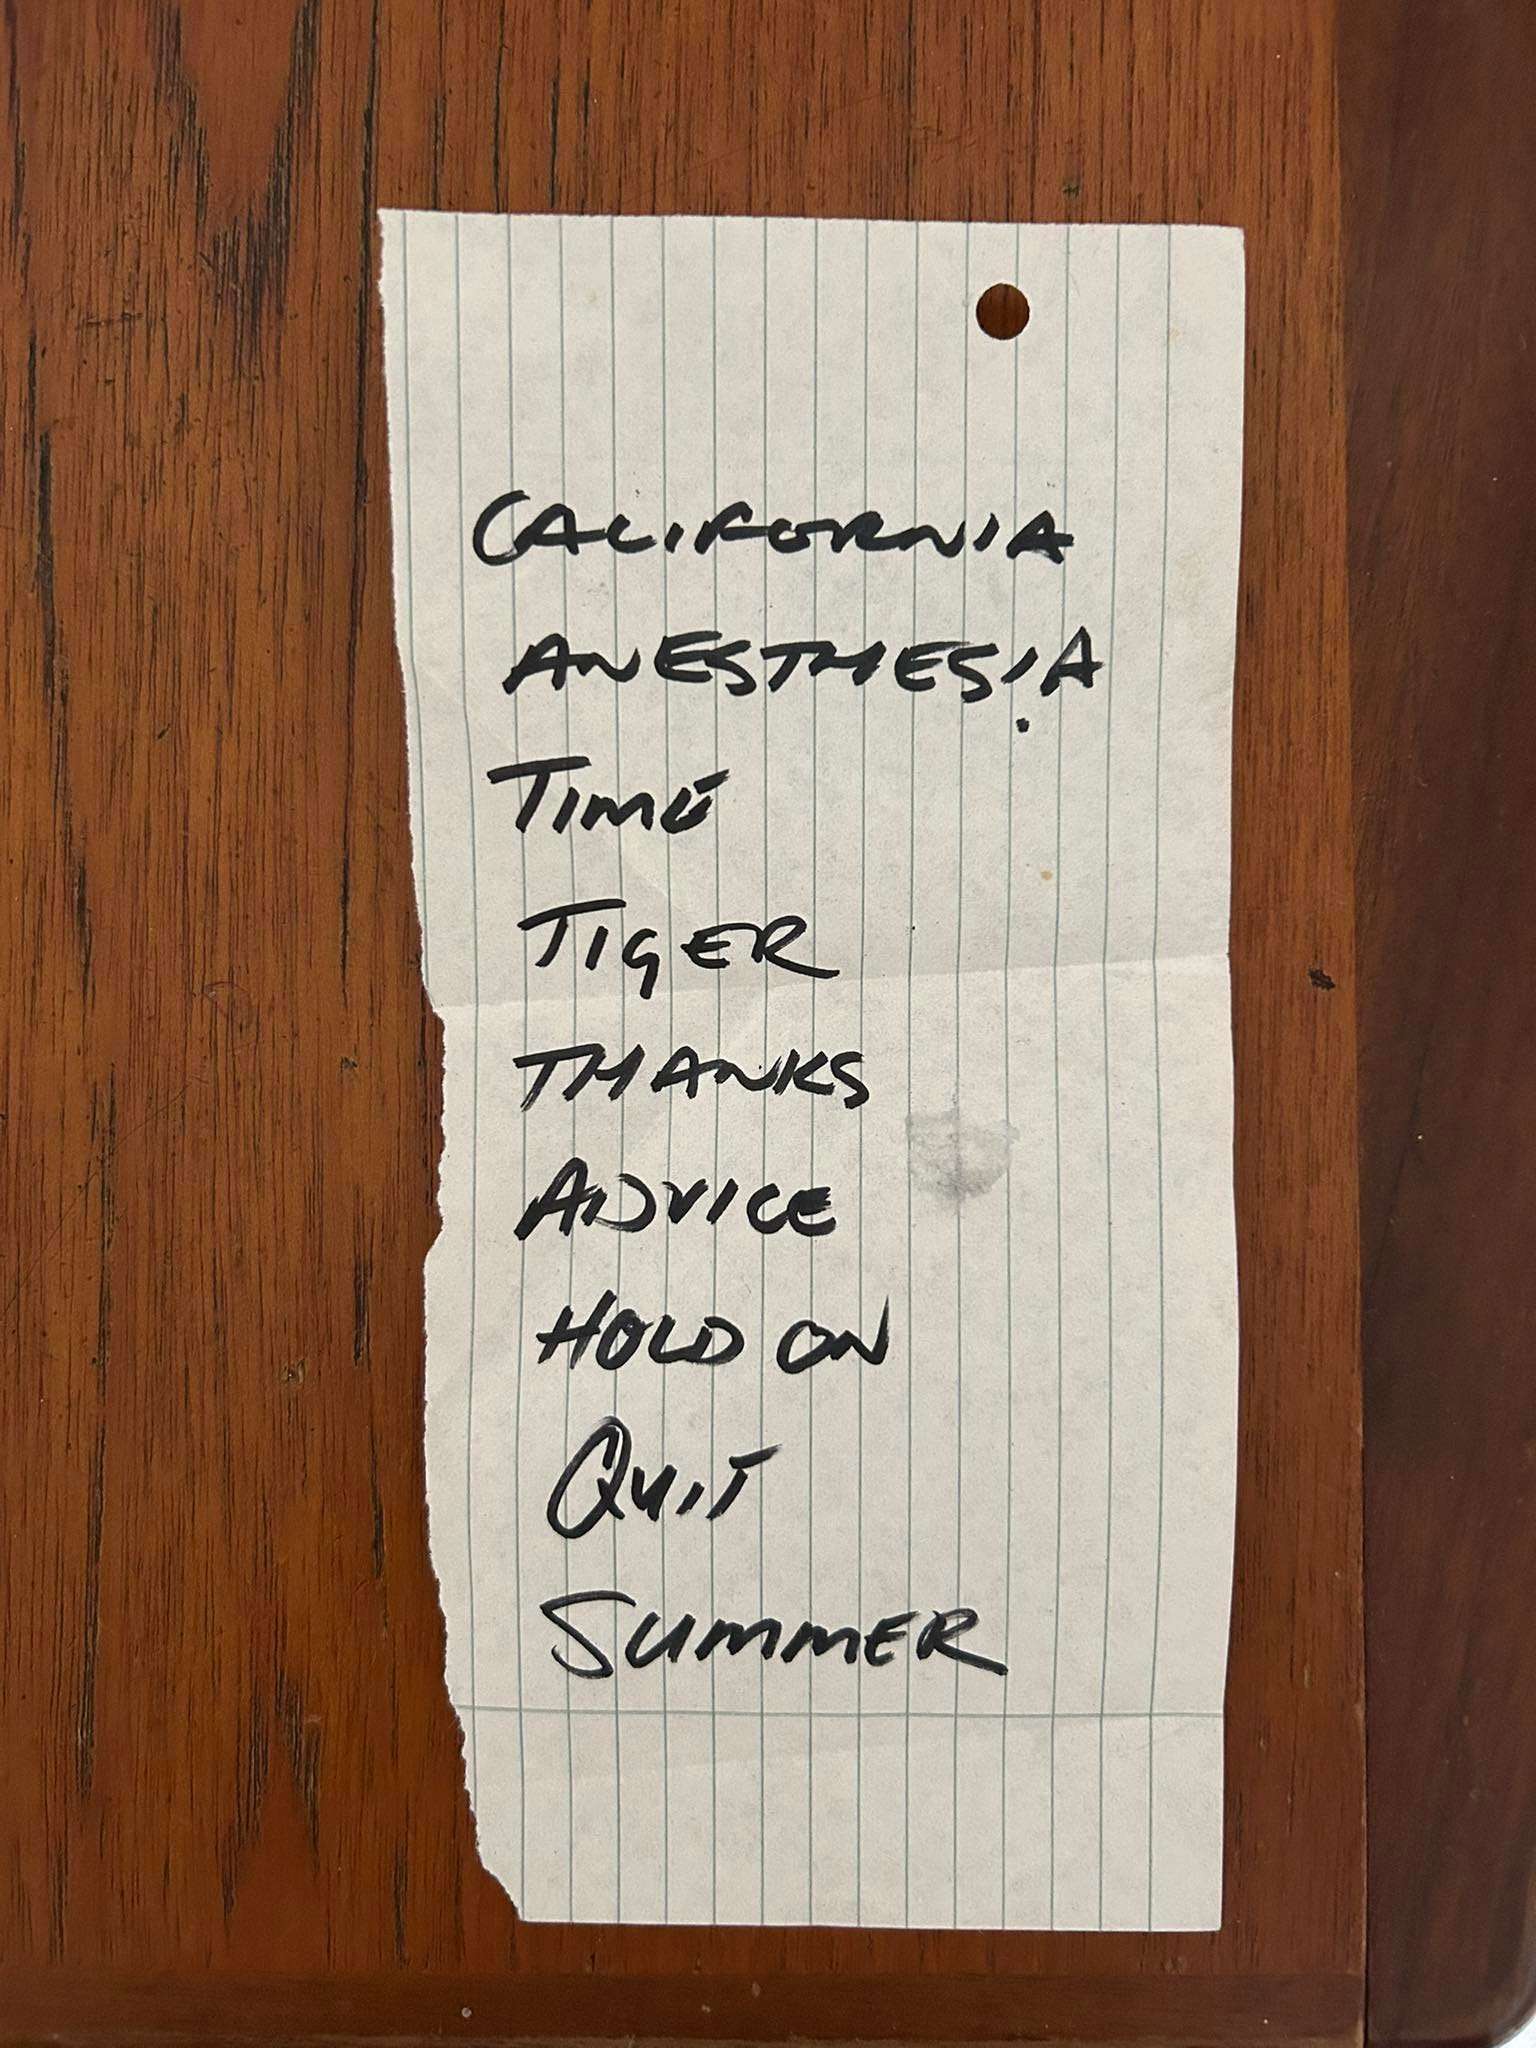 CALIFORNIA
ANESTHESIA
TIME
TIGER
THANKS
ADVICE
HOLD ON
QUIT
SUMMER